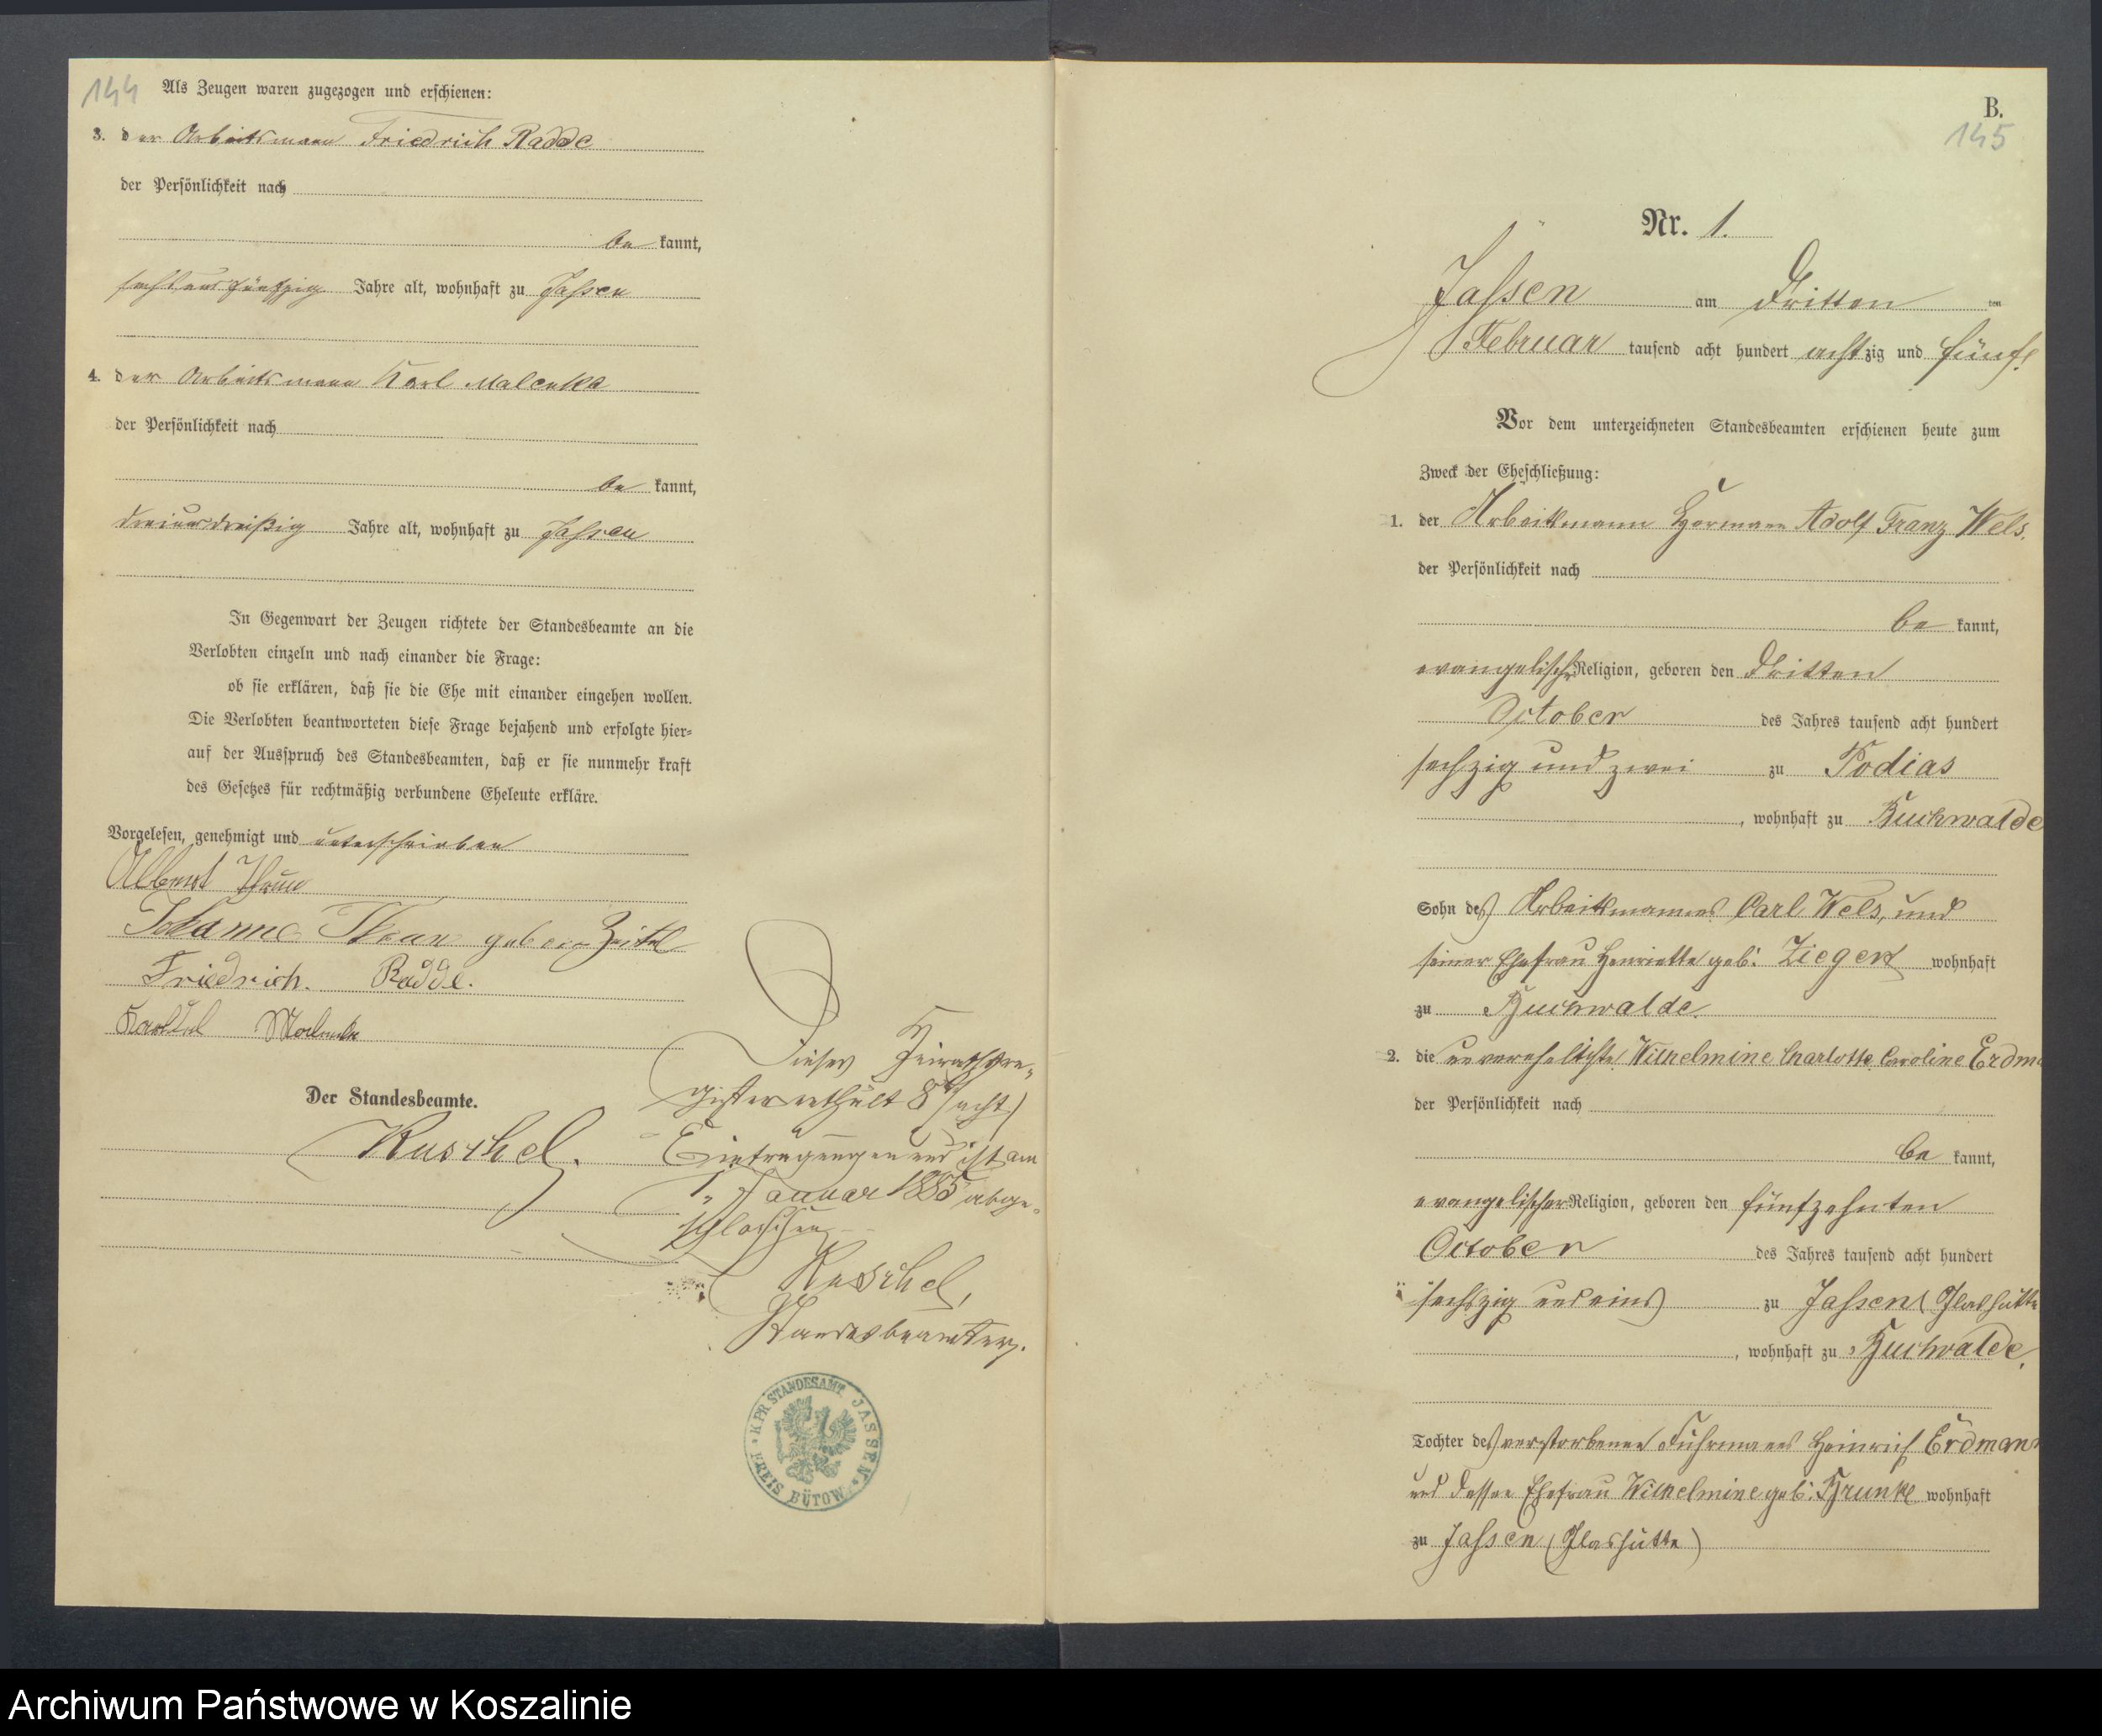 144
Als Zeugen waren zugezogen und erschienen:
3. der Arbeitsmann Friedrich Radde
der Persönlichkeit nach
be kannt,
sechsundfünfzig Jahre alt, wohnhaft zu Jassen
4. der Arbeitsmann Karl Malenke
der Persönlichkeit nach
be kannt,
dreiunddreißig Jahre alt, wohnhaft zu Jassen
In Gegenwart der Zeugen richtete der Standesbeamte an die
Verlobten einzeln und nach einander die Frage:
ob sie erklären, daß sie die Ehe mit einander eingehen wollen.
Die Verlobten beantworteten diese Frage bejahend und erfolgte hier-
auf der Ausspruch des Standesbeamten, daß er sie nunmehr kraft
des Gesetzes für rechtmäßig verbundene Eheleute erkläre.
Vorgelesen, genehmigt und unterschrieben
Albert Thrun
Johanne Thrun geboren
Friedrich. Radde.
Malenke
Der Standesbeamte.
Kuschel.
Dieses Heirathsre-
gister enthält 8 (acht)
Eintragungen und ist am
1. Januar 1885 abge-
schlossen
Kuschel,
Standesbeamter.
K. PR. STANDESAMT JASSEN
KREIS BÜTOW
B.
145
Nr. 1.
Jassen am dritten ten
Februar tausend acht hundert achtzig und fünf.
Vor dem unterzeichneten Standesbeamten erschienen heute zum
Zweck der Eheschließung:
1. der Arbeitsmann Hermann Adolf Franz Wels.
der Persönlichkeit nach
be kannt,
evangelischer Religion, geboren den dritten
October des Jahres tausend acht hundert
sechzig und zwei zu Podias
, wohnhaft zu Buchwalde
Sohn des Arbeitsmannes Carl Wels, und
seiner Ehefrau Henriette geb. Ziegert wohnhaft
zu Buchwalde.
2. die unverehelichte Wilhelmine Charlotte Caroline Erdm
der Persönlichkeit nach
be kannt,
evangelischer Religion, geboren den fünfzehnten
October des Jahres tausend acht hundert
sechszig und eins zu Jassen (Glashütte
, wohnhaft zu Buchwalde.
Tochter des verstorbenen Fuhrmanns Heinrich Erdmann
und dessen Ehefrau Wilhelmine geb. wohnhaft
zu Jassen (Glashütte)
Archiwum Państwowe w Koszalinie